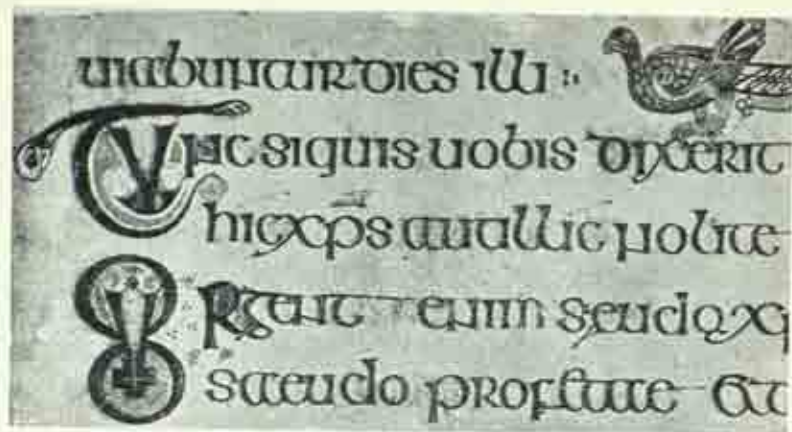 uiabuntur dies illi :·
Tunc siquis uobis dixerit
hicxps autillic nolite
Surgent enim seudoxp
saeudo profetae et